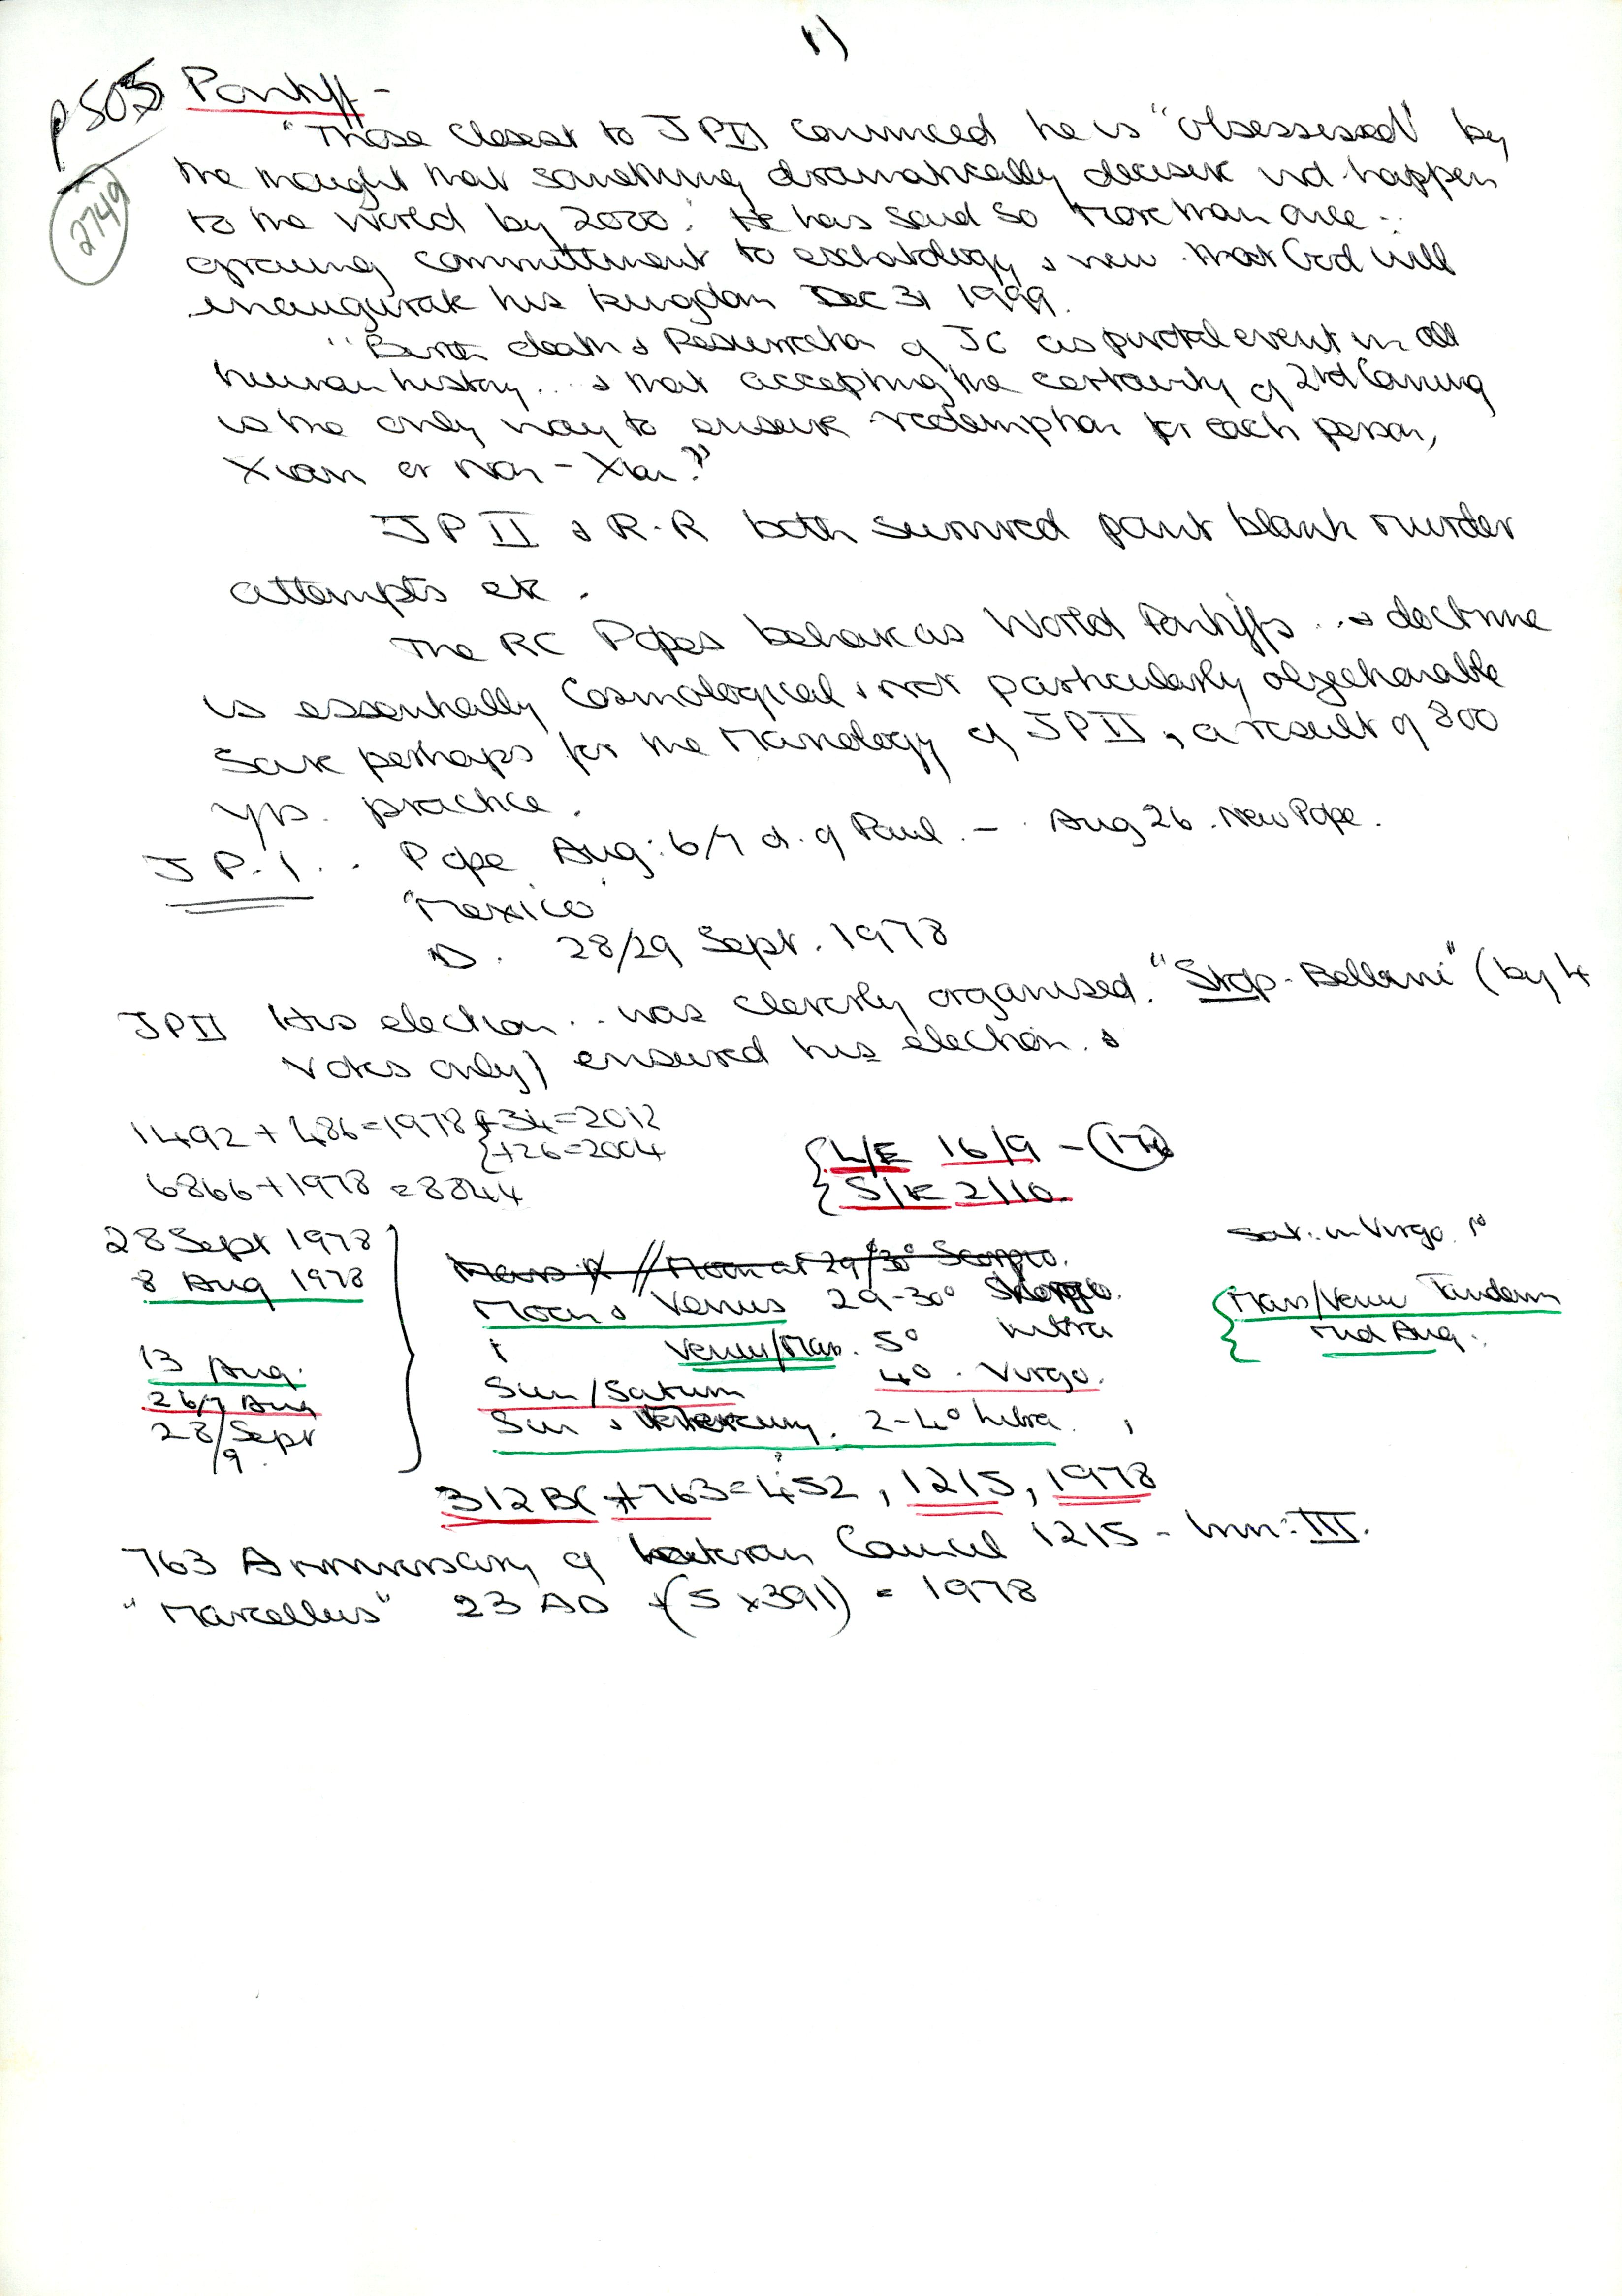 1)
p505 Pontiff -
2749
"Those closest to JPII convinced he is "obsessed" by
the thought that something dramatically decisive wd happen
to the world by 2000. He has said so more than once ..
growing committment to eschatology & view that God will
inaugurate his kingdom Dec 31 1999.
"Birth death & Resurrection of JC as pivotal event in all
human history... & that accepting the certainty of 2nd Coming
is the only way to ensure redemption for each person,
Xian or non-Xian?"
JP II & R.R both survived point blank murder
attempts etc.
The RC Popes behave as World Pontiffs .. & doctrine
is essentially Cosmological & not particularly objectionable
save perhaps for the Mariology of JPII, a result of 800
yrs. practice.
JP.1... Pope Aug: 6/7 d. of Paul. - Aug 26. New Pope.
"Mexico"
D. 28/29 Sept. 1978
JPII His election.. was cleverly organised. "Stop-Bellani" (by 4
votes only) ensured his election. &
1492 + 486 = 1978 { +34 = 2012
{ +26 = 2004
6866 + 1978 = 8844
{ L/E 16/9 - (17th)
{ S/E 2/10.
28 Sept 1978
8 Aug 1978
Mars // Moon at 29/30° Scorpio.
Sat: in Virgo
Moon & Venus 29-30°
Venus/Mar. 5° Libra
{ Mars/Venus Tandem
Mid Aug.
13 Aug.
Sun/Saturn 4° . Virgo.
26/7 Aug
Sun & Mercury. 2-4° Libra.
28/9 Sept
312 BC + 763 = 452, 1215, 1978
763 Anniversary of Lateran Council 1215 - Inn: III.
"Marcellus" 23 AD + (5 x 391) = 1978